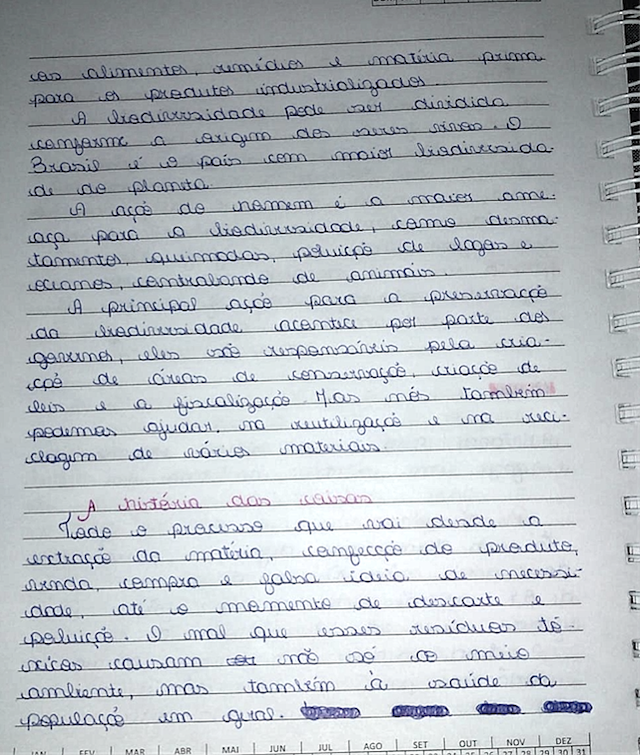 os alimentos, remédios e matéria prima
para os produtos industrializados.
A biodiversidade pode ser dividida
conforme a origem dos seres vivos. O
Brasil é o país com maior biodiversida-
de do planeta.
A ação do homem é a maior ame-
aça para a biodiversidade, como desma-
tamentos, queimadas, poluição de lagos e
oceanos, contrabando de animais.
A principal ação para a preservação
da biodiversidade acontece por parte dos
governos, eles são responsáveis pela cria-
ção de áreas de conservação, criação de
leis e a fiscalização. Mas nós também
podemos ajudar, na reutilização e na reci-
clagem de vários materiais.
A história das coisas
Todo o processo que vai desde a
extração da matéria, confecção do produto,
venda, compra e falsa ideia de necessi-
dade, até o momento de descarte e
poluição. O mal que esses resíduos tó-
xicos causam não só ao meio
ambiente, mas também à saúde da
população em geral.
JAN FEV MAR ABR MAI JUN JUL AGO SET OUT NOV DEZ